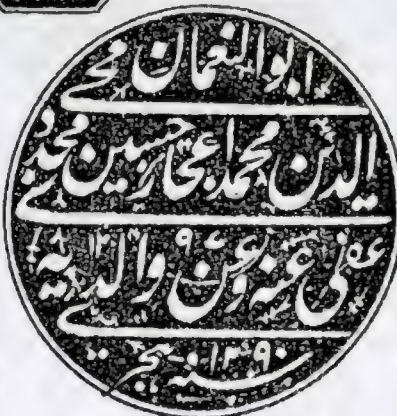 ابو النعمان محی
الدین محمد اعجاز حسین مجددی
عفی عنہ وعن والدیہ
سنہ ۱۳۹۰ ہجری